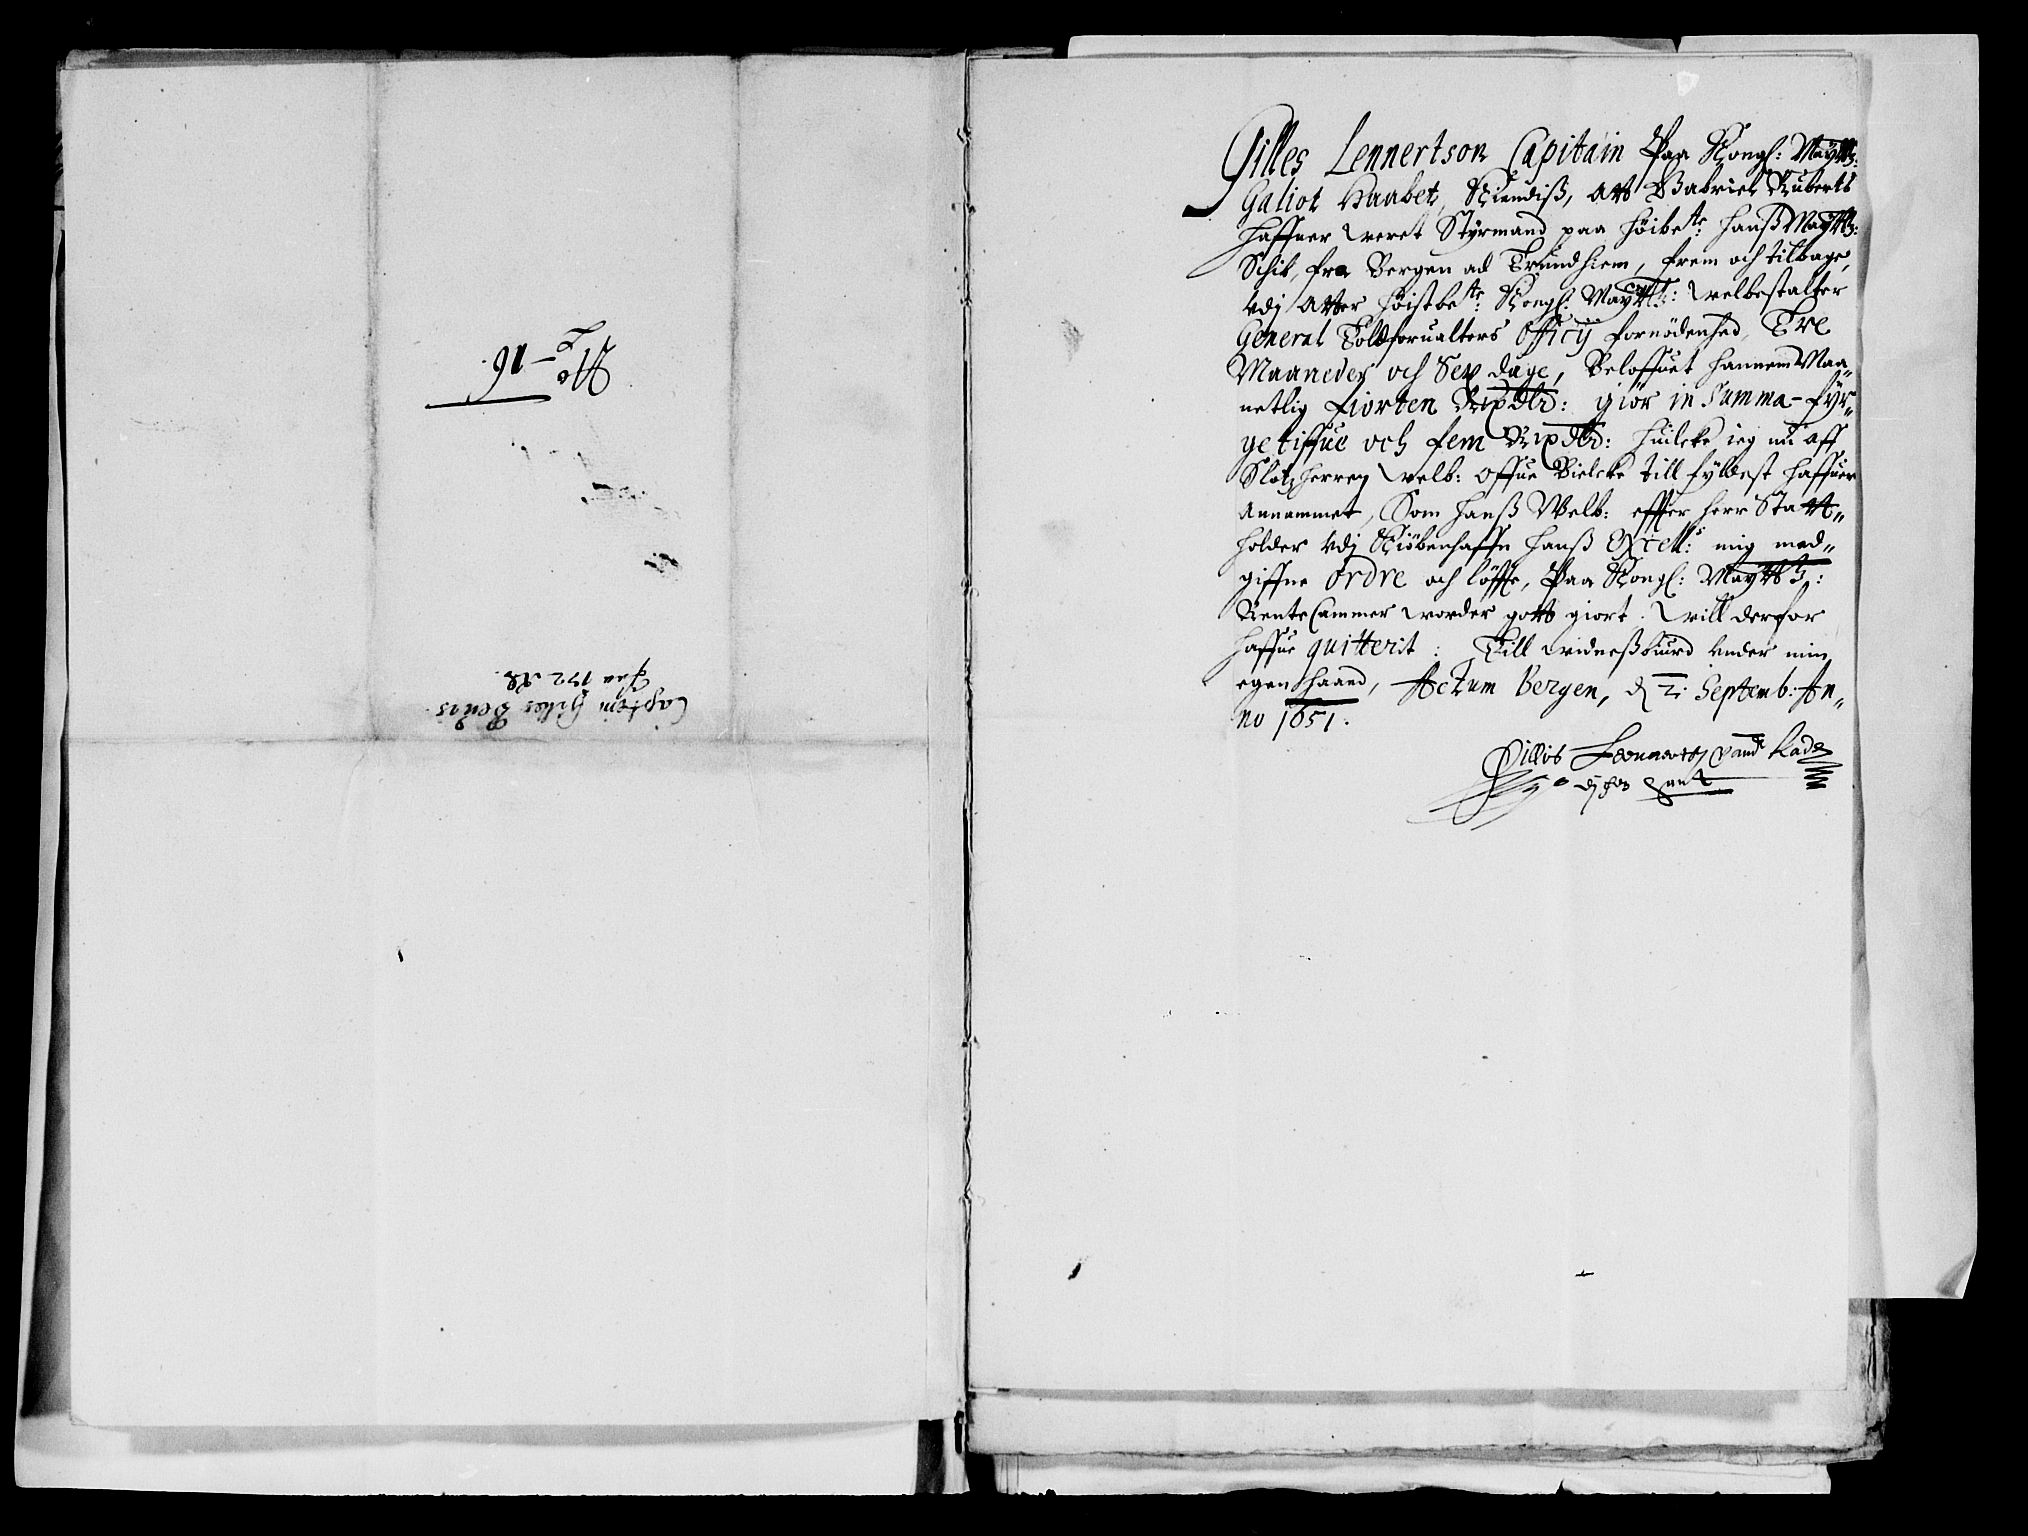 No – 16.
Captein Gilles Beuis
paa 172 Rd.
Gilles Lennertson Capitain Paa Kongl: Maytts:
Galiot Haabet, Kiendiß, att Gabriel Ruberts
haffuer weret Styrmand paa høibete: hanß Maytts:
Schib, fra Bergen ad Trundhiem, frem och tilbage,
vdj atter høistbete: Kongl: Maytts: welbestalter
General Toldforualters Officij fornødenhed, Tre
Maaneder och Sex dage, Beloffuet hannem Maa„
netlig Fiorten Rixdlr: giør in Summa – fyr„
getiffue och fem Rixdlr: huilcke ieg nu aff
Slotzherren Welb: Offue Bielcke till fyldest haffuer
Annammet, Som hanß Welb: effter herr Statt„
holder vdj Kiöbenhaffn hanß Excell:s mig med„
giffne Ordre och løffte, Paa Kongl: Maytts:
Rente Cammer worder gott giort. Will derfor
haffue quitterit: Till vidneßbiurd vnder min
egen haand, Actum Bergen, d 2: Septemb: An„
no 1651:
Gillis Lennerts